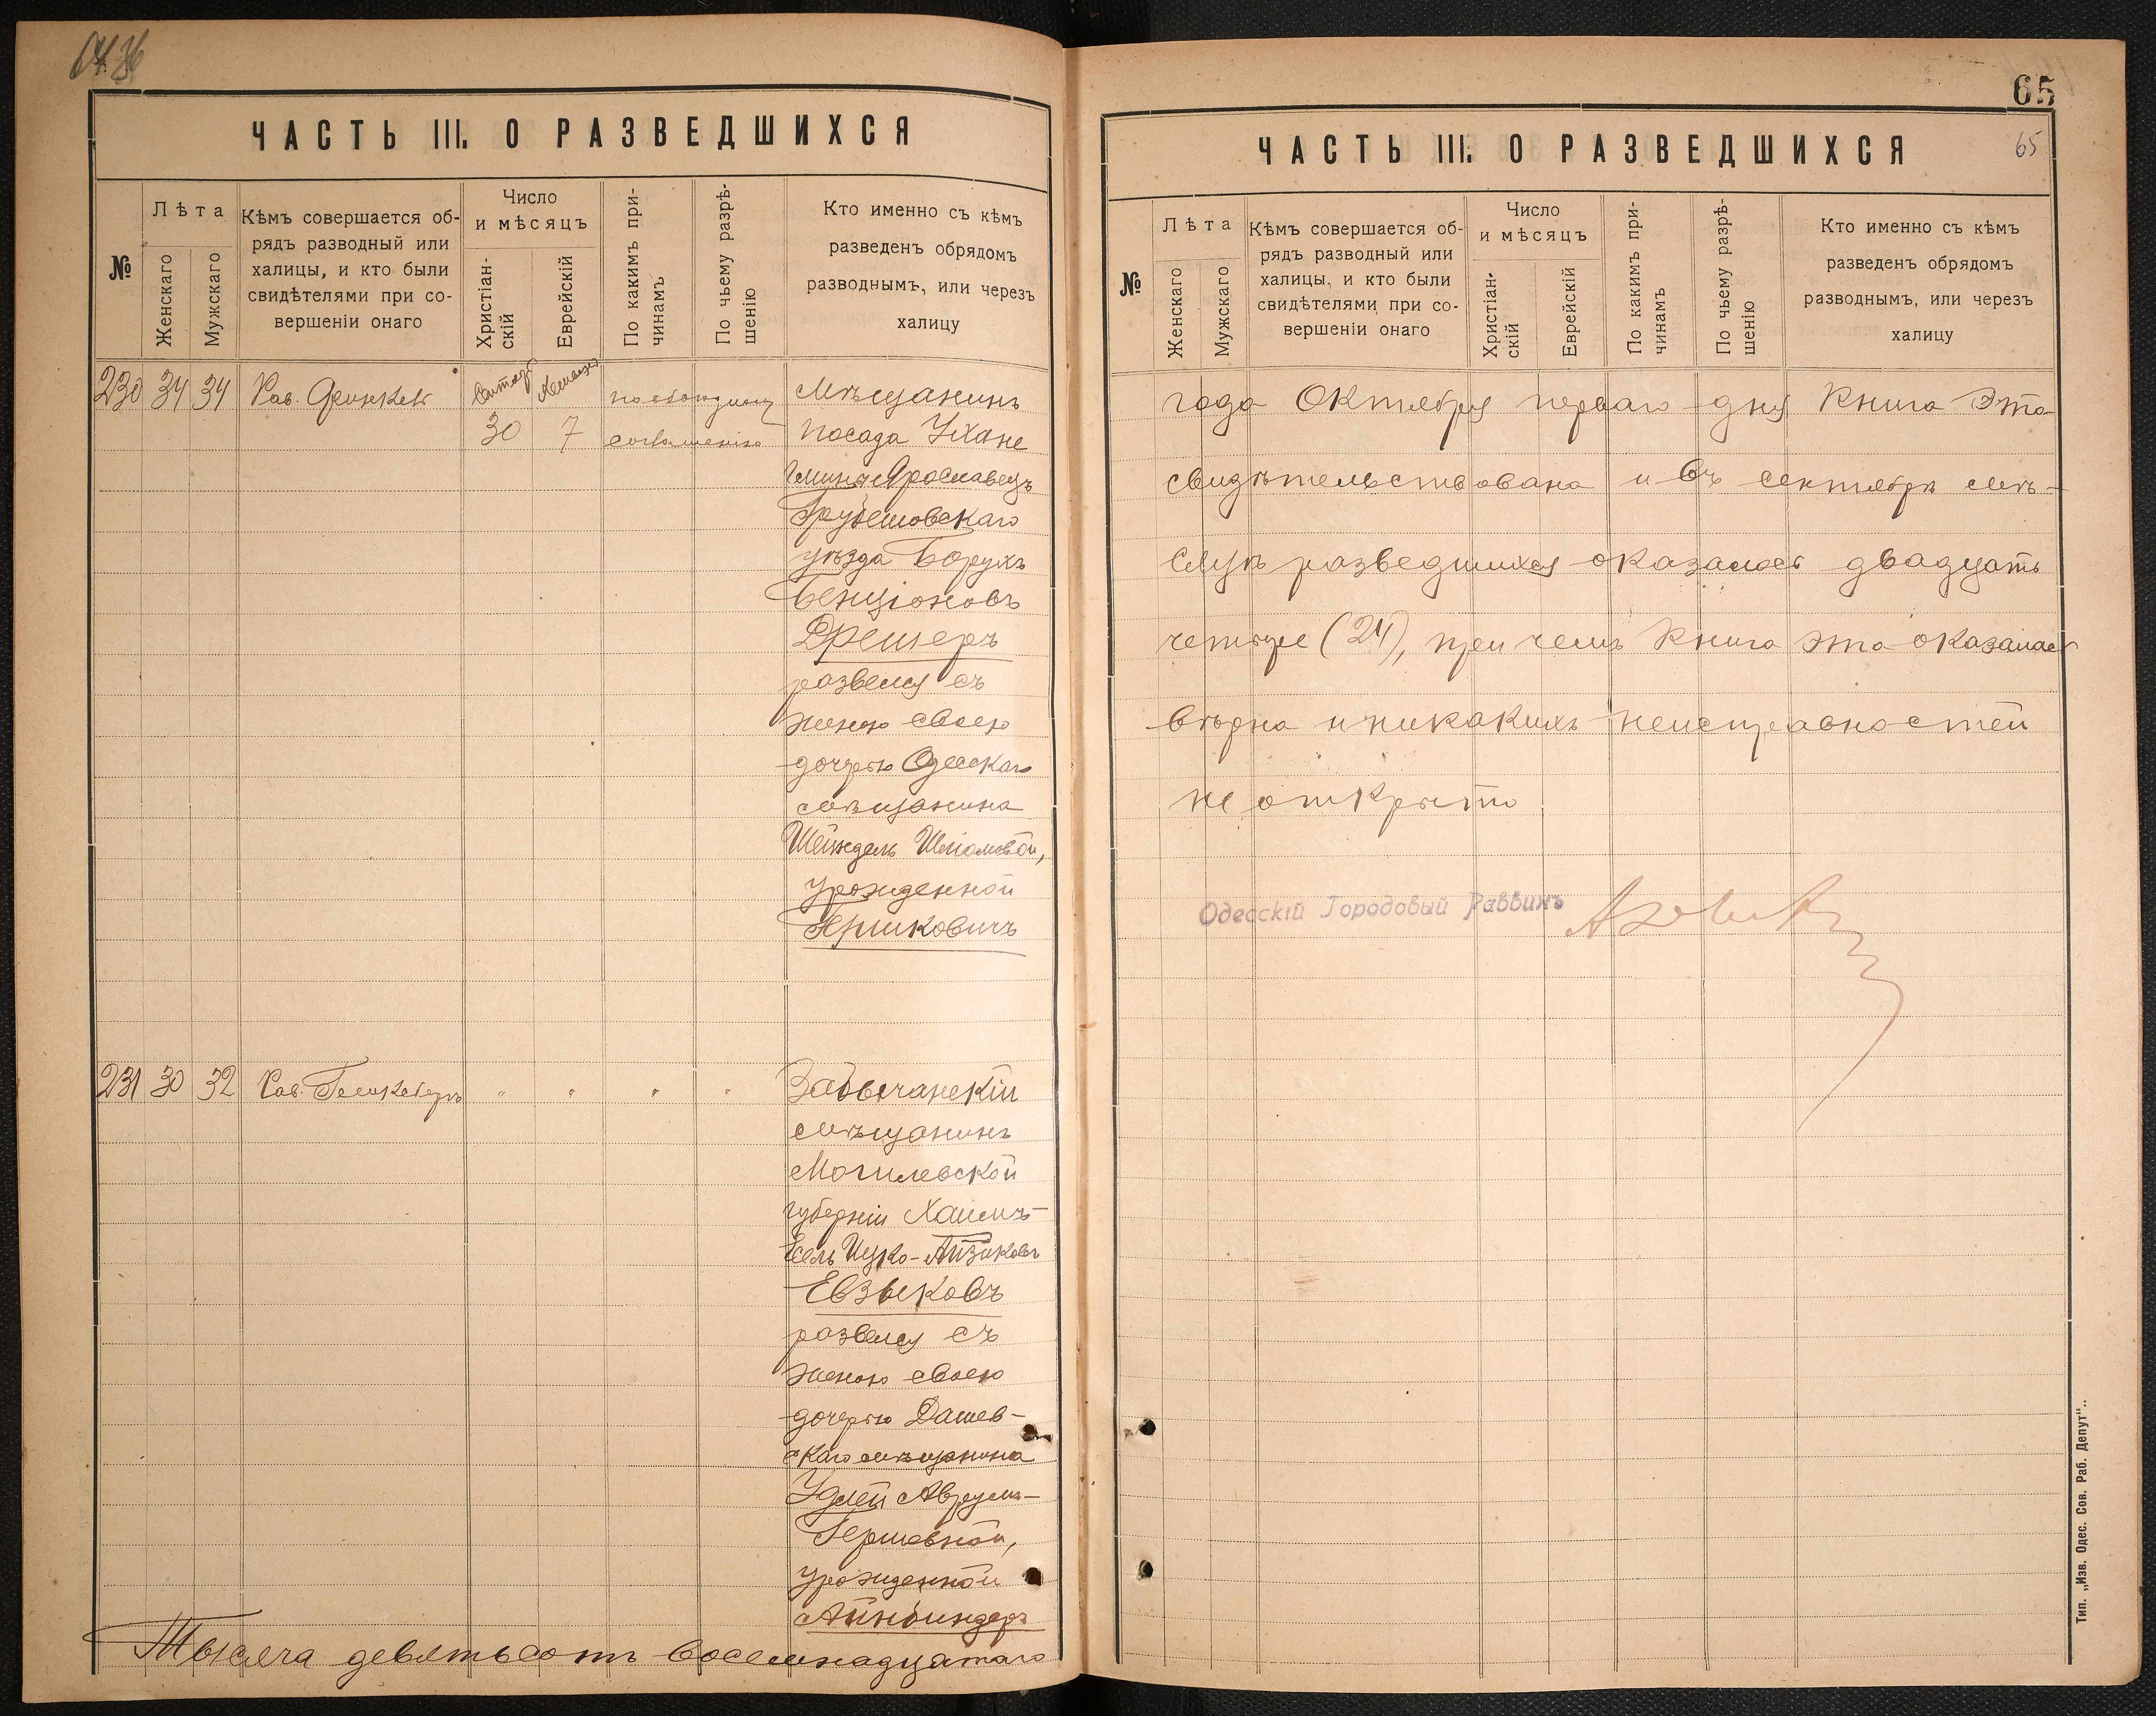 65
ЧАСТЬ III. О РАЗВЕДШИХСЯ
№
Лѣта
Женскаго
Мужскаго
Кѣмъ совершается об-
рядъ разводный или
халицы, и кто были
свидѣтелями при со-
вершеніи онаго
Число
и мѣсяцъ
Христіан-
скій
Еврейскій
По какимъ при-
чинамъ
По чьему разрѣ-
шенію
Кто именно съ кѣмъ
разведенъ обрядомъ
разводнымъ, или черезъ
халицу
230 34 34 Рав.
30 7
по обоюдному
соглашенію
Мѣщанинъ
посада Ухане
гмины Ярославецъ
Грубешовскаго
уѣзда Борухъ
Бенціоновъ
Дрешеръ
развелся съ
женою своею
дочерью Одесскаго
мѣщанина
Шейндель Шліомовой,
урожденной
Ярмковичъ
231 30 32 Рав.
" " " "
Забычанскій
мѣщанинъ
Могилевской
губерніи Хаимъ-
Есель Ицко-Айзиковъ
Евзыковъ
развелся съ
женою своею
дочерью Дашев-
скаго мѣщанина
Удлей Аврумъ-
Гершовной,
урожденной
Айнбиндеръ
Тысяча девятьсотъ восемнадцатаго
ЧАСТЬ III. О РАЗВЕДШИХСЯ
65
№
Лѣта
Женскаго
Мужскаго
Кѣмъ совершается об-
рядъ разводный или
халицы, и кто были
свидѣтелями при со-
вершеніи онаго
Число
и мѣсяцъ
Христіан-
скій
Еврейскій
По какимъ при-
чинамъ
По чьему разрѣ-
шенію
Кто именно съ кѣмъ
разведенъ обрядомъ
разводнымъ, или черезъ
халицу
года Октября перваго дня Книга эта
свидѣтельствована и въ сентябрѣ мѣ-
сяцѣ разведшихся оказалось двадцать
четыре (24), при чемъ Книга эта оказалась
вѣрна и никакихъ неисправностей
не открыто
Одесскій Городовый Раввинъ
Тип. „Изв. Одес. Сов. Раб. Депут"..